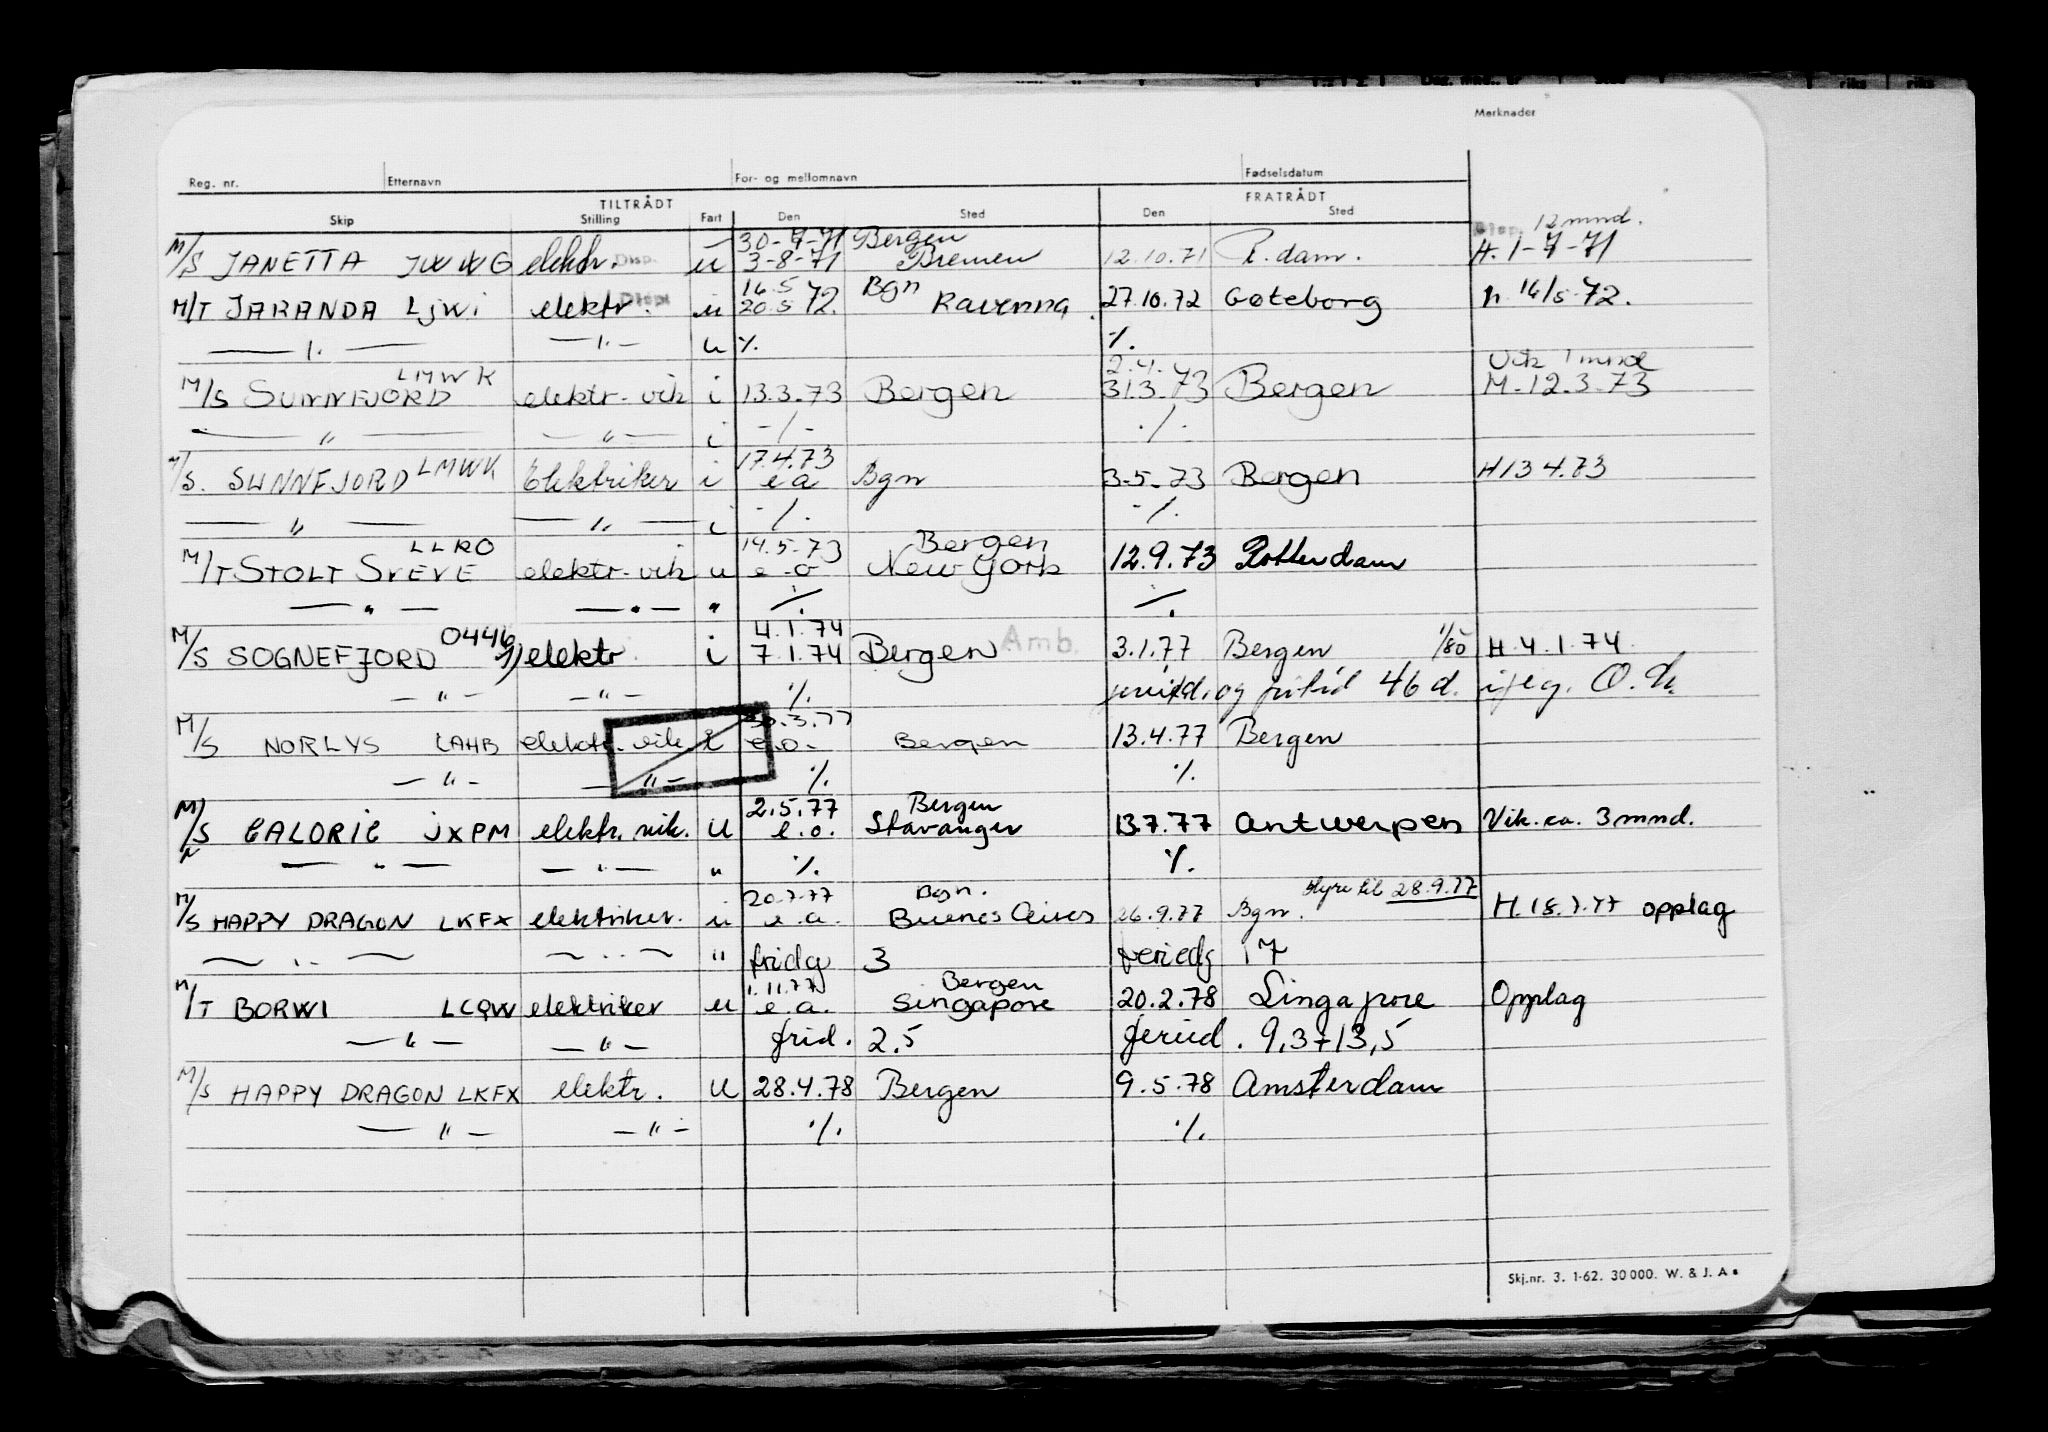 Merknader
Reg. nr. Etternavn For- og mellomnavn Fødselsdatum
TILTRÅDT FRATRÅDT
Skip Stilling Fart Den Sted Den Sted
30-7-71 Bergen Disp. 12 mnd.
M/S JANETTA JWWG elektr. Disp. u 3-8-71 Bremen 12.10.71 R.dam. H. 1-7-71
16.5 Bgn
M/T JARANDA LJWI elektr. Disp. u 20.5 72. Ravenna. 27.10.72 Gøteborg h. 16/5-72.
— ". — — ". — u ·/. ·/.
LMWK 2.4.73 Vik 1 mnd
M/S SUNNFJORD elektr. vik i 13.3.73 Bergen 31.3.73 Bergen M. 12.3.73
— " — — " — i -/- ·/·
17.4.73
M/S. SUNNFJORD LMWK Elektriker i e a Bgn 3.5.73 Bergen H 13 4.73
— " — — " — i -/. -/.
LLRO 14.5.73 Bergen
M/T STOLT SVEVE elektr. vik u e.o New York 12.9.73 Rotterdam
— " — — " — " ·/. ·/.
0446 4.1.74
M/S SOGNEFJORD elektr. i 7.1.74 Bergen Amb. 3.1.77 Bergen 1/80 H. 4.1.74
— " — — " — ·/. og 46 d.
30.3.77
M/S NORLYS LAHB elektr. vik i e.o. Bergen 13.4.77 Bergen
— " — — " — ·/. ·/.
2.5.77 Bergen
M/S CALORIC JXPM elektr. vik. u e.o. Stavanger 13.7.77 Antwerpen Vik. ca. 3 mnd.
— " — — " — " ·/. ·/.
20.7.77 Bgn. Hyre til 28.9.77
M/S HAPPY DRAGON LKFX elektriker. u e.a. Buenos Aires 26.9.77 Bgn. H. 18.7.77 opplag
— " — — " — " fridg 3 feriedg 17
1.11.77 Bergen
M/T BORWI LCQW elektriker u e.a. Singapore 20.2.78 Singapore Opplag
— " — — " — frid. 2.5 feried. 9,3+13,5
M/S HAPPY DRAGON LKFX elektr. u 28.4.78 Bergen 9.5.78 Amsterdam
— " — — " — ·/. ·/.
Skj.nr. 3. 1-62. 30000. W. & J. A.